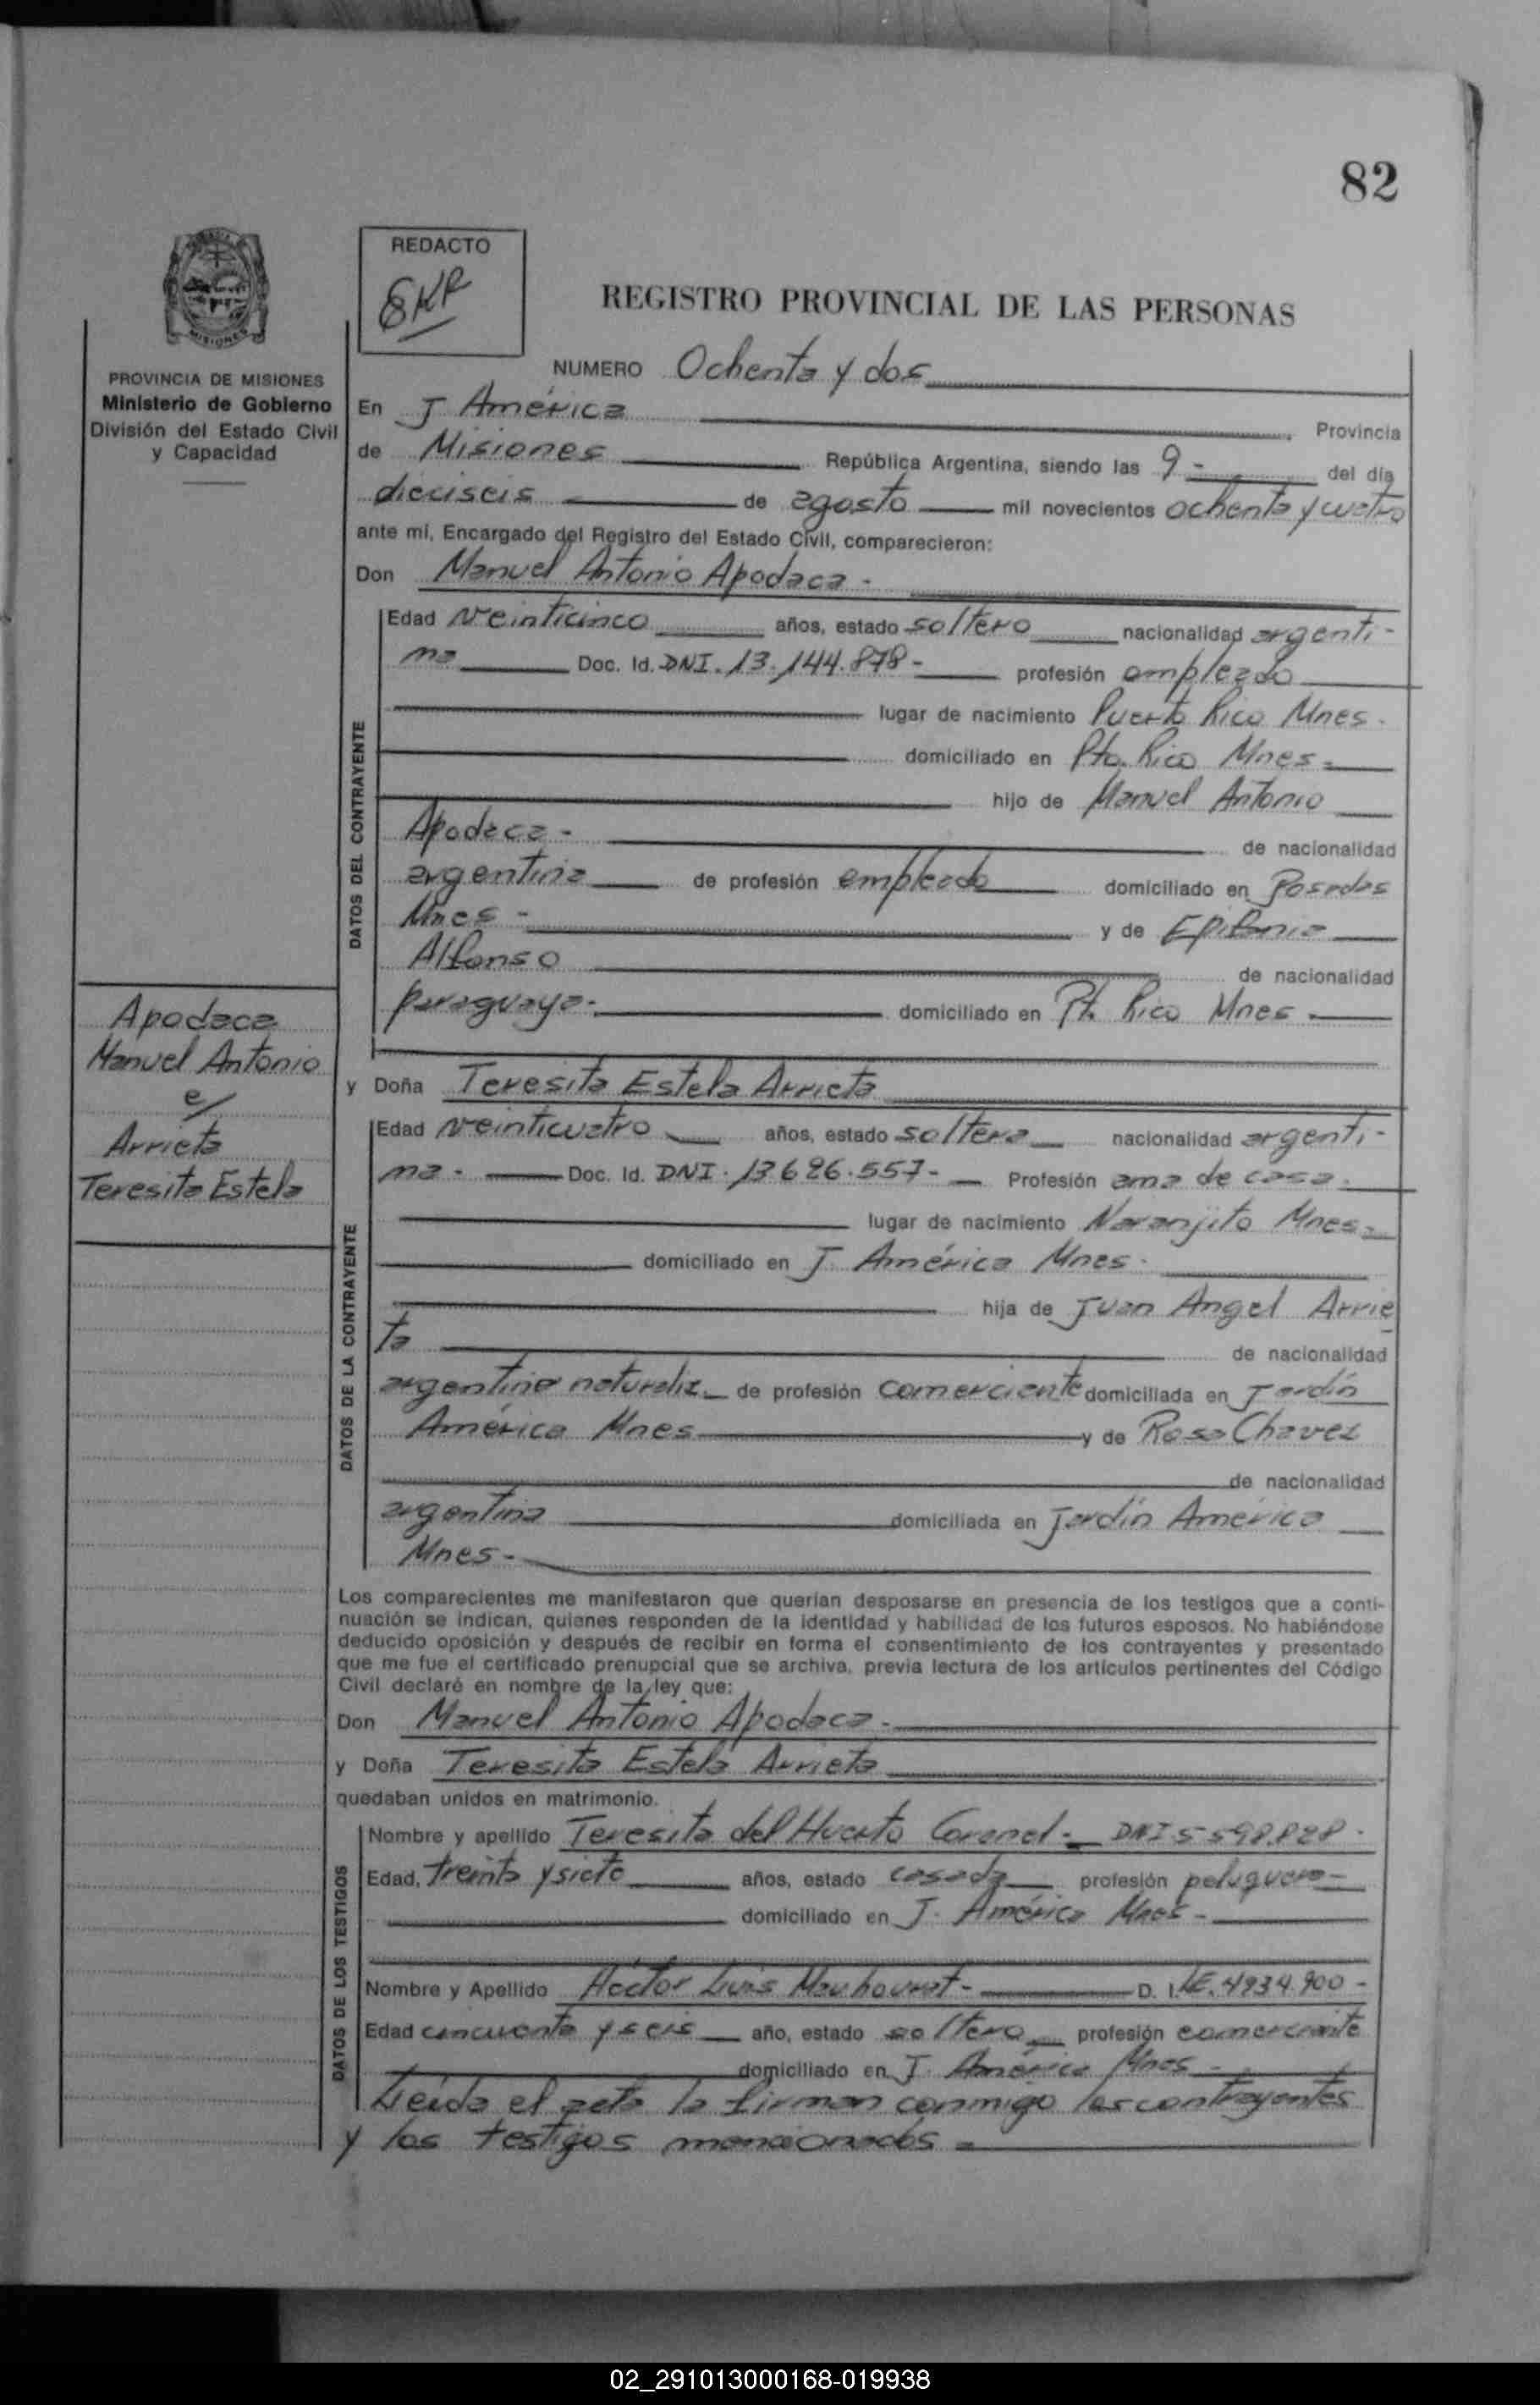 82
REDACTO
REGISTRO PROVINCIAL DE LAS PERSONAS
NUMERO Ochenta y dos
PROVINCIA DE MISIONES
Ministerio de Gobierno
División del Estado Civil
y Capacidad
En J América Provincia
de Misiones República Argentina, siendo las 9- del día
dieciseis de agosto mil novecientos ochenta y cuatro
ante mí, Encargado del Registro del Estado Civil, comparecieron:
Don Manuel Antonio Apodaca-
DATOS DEL CONTRAYENTE
Edad veinticinco años, estado soltero nacionalidad argenti-
na Doc. Id. DNI. 13.144.878- profesión empleado
lugar de nacimiento Puerto Rico Mnes.
domiciliado en Pto. Rico Mnes-
hijo de Manuel Antonio
Apodaca- de nacionalidad
argentina de profesión empleado domiciliado en Posadas
Mnes- y de Epifania
Alfonso de nacionalidad
paraguaya- domiciliado en Pt. Rico Mnes.
Apodaca
Manuel Antonio
e/
Arrieta
Teresita Estela
y Doña Teresita Estela Arrieta
DATOS DE LA CONTRAYENTE
Edad veinticuatro años, estado soltera nacionalidad argenti-
na- Doc. Id. DNI. 13626.557- Profesión ama de casa.
lugar de nacimiento Naranjito Mnes-
domiciliado en J. América Mnes.
hija de Juan Angel Arrie
ta de nacionalidad
argentino naturaliz de profesión comerciante domiciliada en Jardín
América Mnes y de Rosa Chavez
de nacionalidad
argentina domiciliada en Jardín América
Mnes-
Los comparecientes me manifestaron que querían desposarse en presencia de los testigos que a conti-
nuación se indican, quienes responden de la identidad y habilidad de los futuros esposos. No habiéndose
deducido oposición y después de recibir en forma el consentimiento de los contrayentes y presentado
que me fue el certificado prenupcial que se archiva, previa lectura de los artículos pertinentes del Código
Civil declaré en nombre de la ley que:
Don Manuel Antonio Apodaca-
y Doña Teresita Estela Arrieta
quedaban unidos en matrimonio.
DATOS DE LOS TESTIGOS
Nombre y apellido Teresita del Huerto Coronel- DNI 5598.828-
Edad, treinta y siete años, estado casada profesión peluquera-
domiciliado en J. América Mnes-
Nombre y Apellido Héctor Luis D. I. LE. 4934.900-
Edad cincuenta y seis año, estado soltero profesión comerciante
domiciliado en J. América Mnes-
Leída el acta la firman conmigo los contrayentes
y los testigos mencionados-
02_291013000168-019938